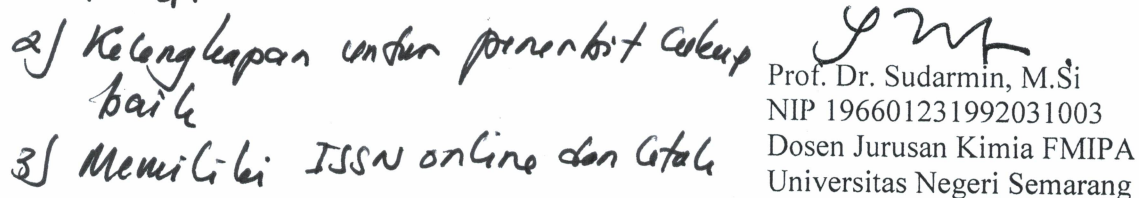 2) Kelengkapan untuk penerbit cukup
baik
3) Memiliki ISSN online dan cetak
Prof. Dr. Sudarmin, M.Si
NIP 196601231992031003
Dosen Jurusan Kimia FMIPA
Universitas Negeri Semarang